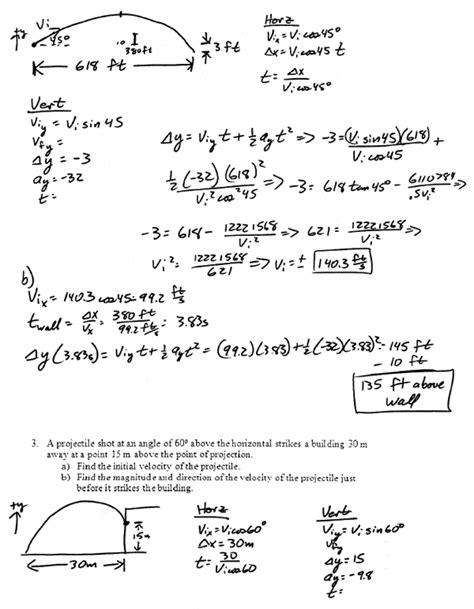 Vi
45°
+y
10
380 ft
3 ft
618 ft
Horz
Vix = Vi cos 45°
Δx = Vi cos 45 t
t = Δx / Vi cos 45°
Vert
Viy = Vi sin 45
Vfy =
Δy = -3
ay = -32
t =
Δy = Viy t + 1/2 ay t² => -3 = (Vi sin 45)(618) / Vi cos 45 +
1/2 (-32)(618)² / Vi² cos² 45 => -3 = 618 tan 45° - 6110784 / .5Vi² =>
-3 = 618 - 12221568 / Vi² => 621 = 12221568 / Vi² =>
Vi² = 12221568 / 621 => Vi = ± 140.3 ft/s
b)
Vix = 140.3 cos 45 = 99.2 ft/s
t wall = Δx / Vx = 380 ft / 99.2 ft/s = 3.83s
Δy (3.83s) = Viy t + 1/2 ay t² = (99.2)(3.83) + 1/2 (-32)(3.83)² = 145 ft
- 10 ft
135 ft above
wall
3. A projectile shot at an angle of 60° above the horizontal strikes a building 30 m
away at a point 15 m above the point of projection.
a) Find the initial velocity of the projectile.
b) Find the magnitude and direction of the velocity of the projectile just
before it strikes the building.
+y
15m
30m
Horz
Vix = Vi cos 60°
Δx = 30m
t = 30 / Vi cos 60
Vert
Viy = Vi sin 60°
Vfy
Δy = 15
ay = -9.8
t =